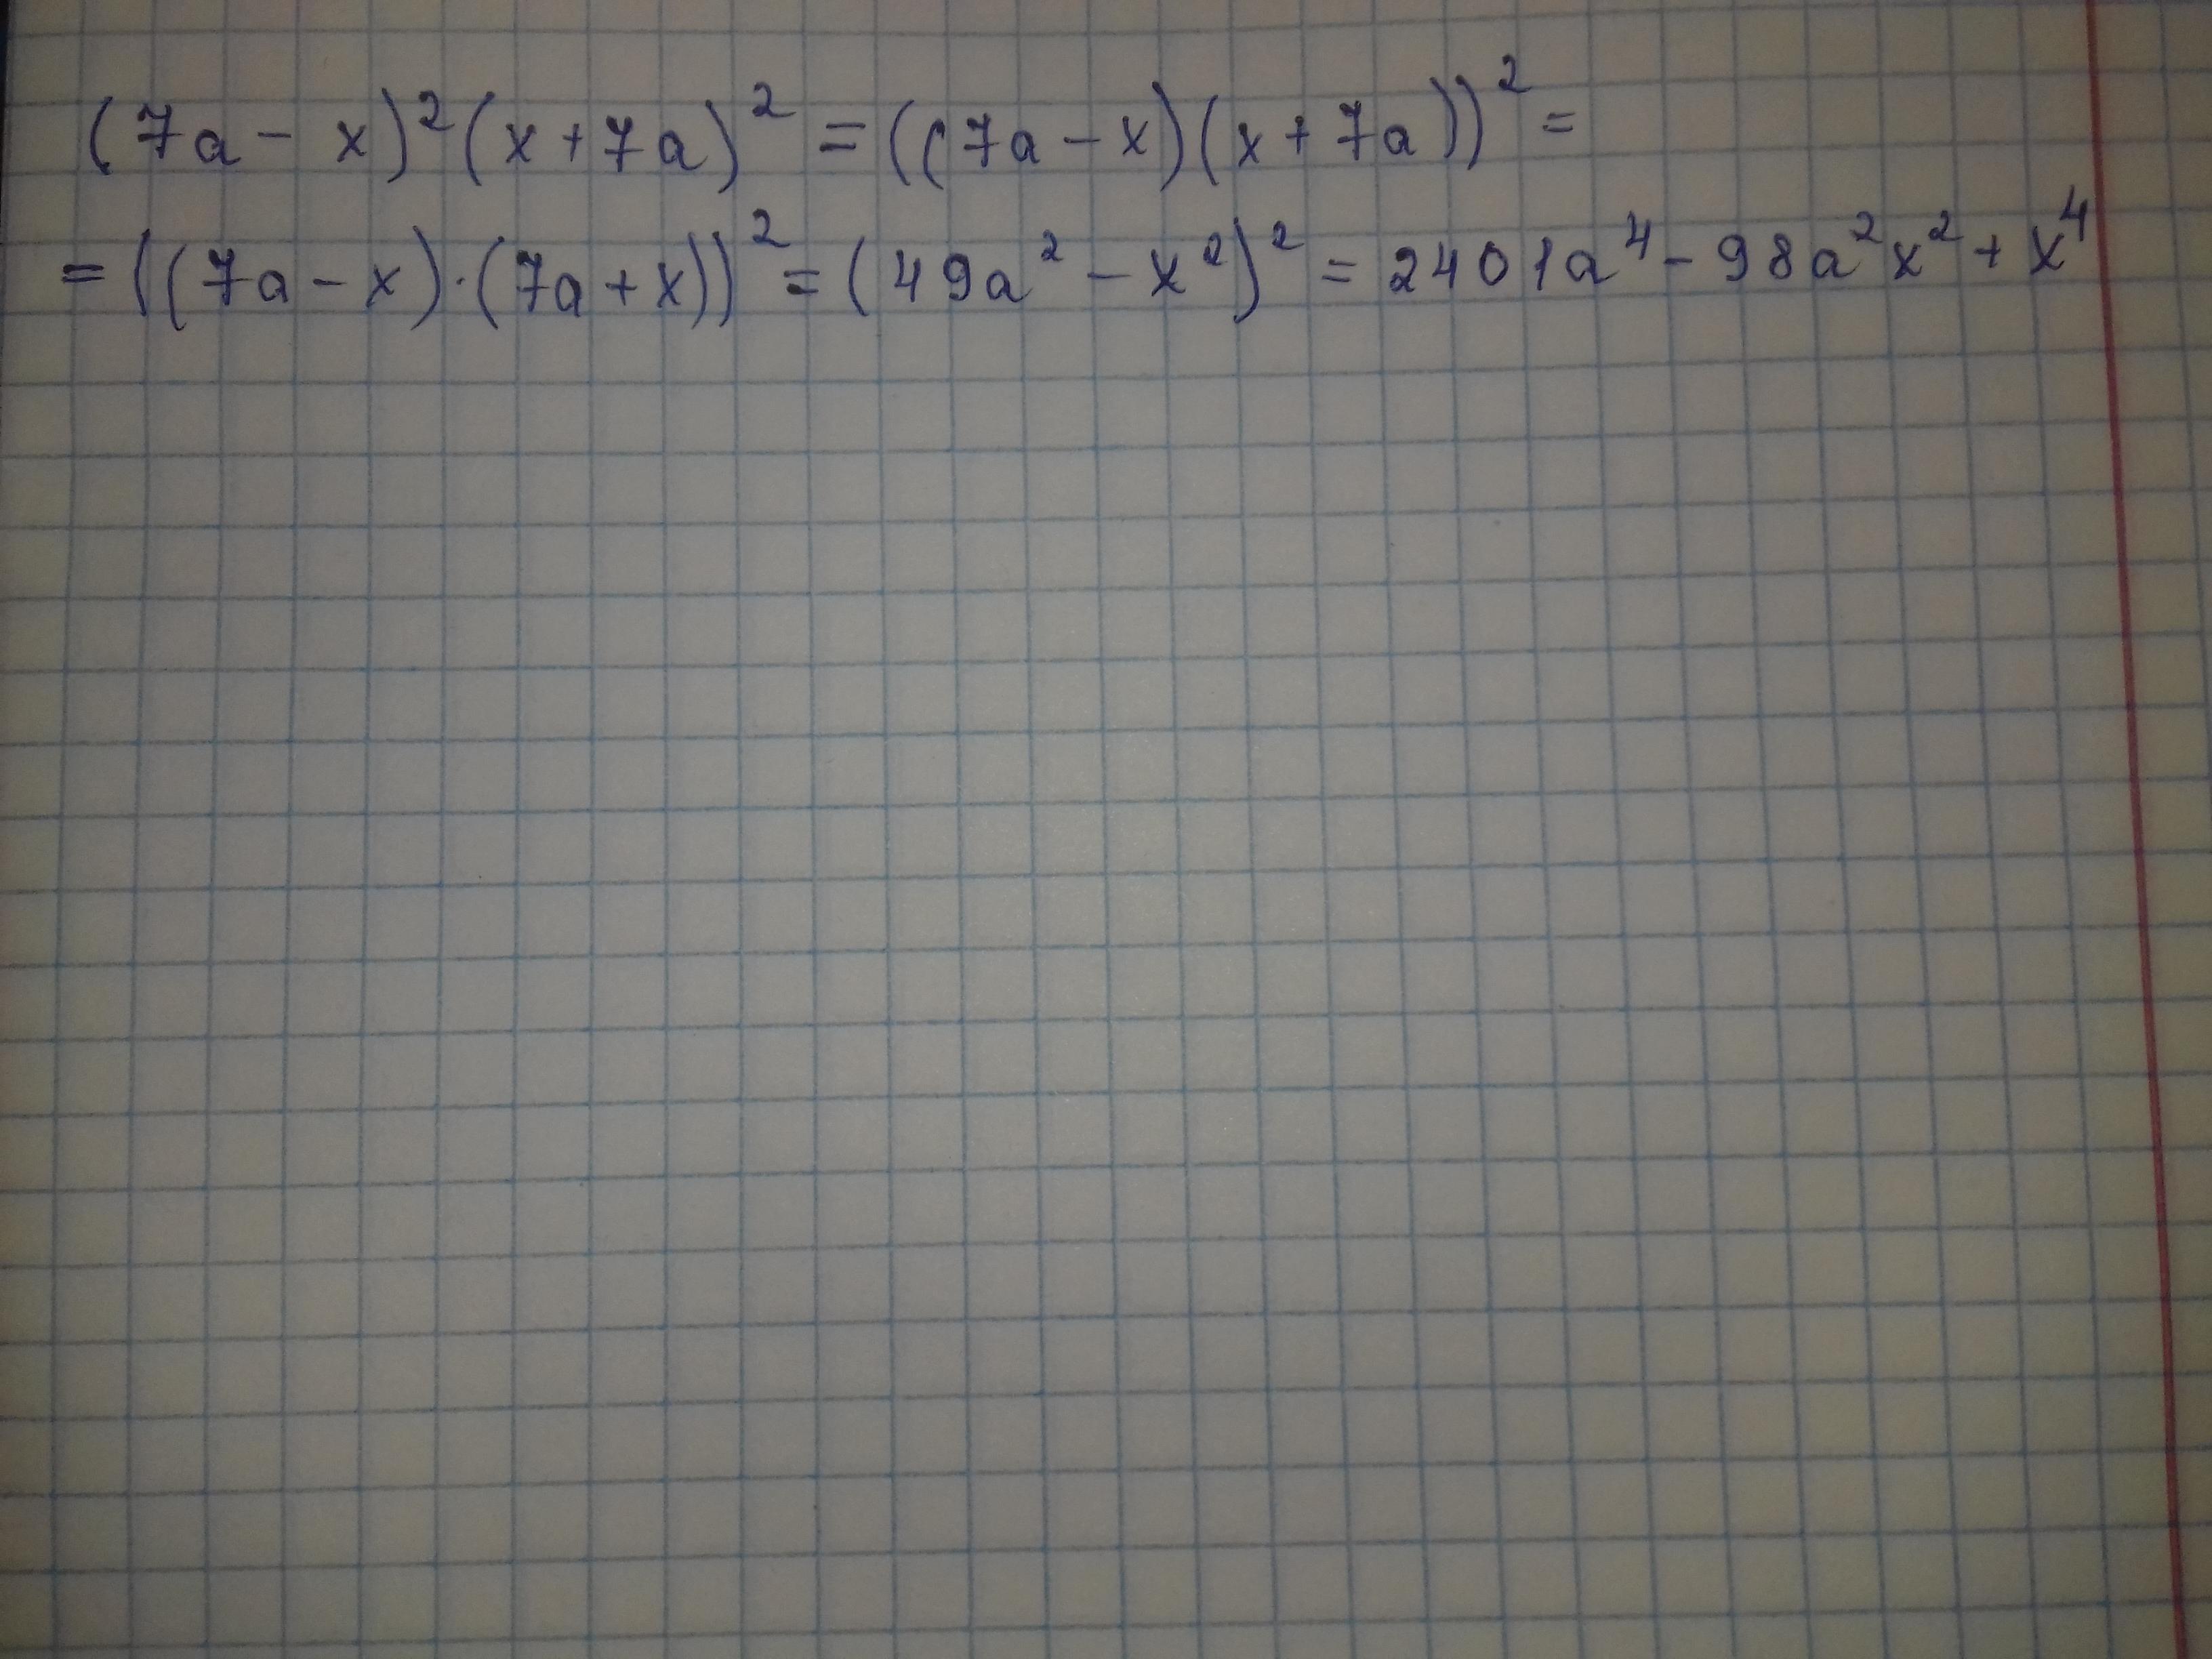 (7a - x)²(x+7a)² = ((7a-x)(x+7a))² =
= ((7a-x)·(7a+x))² = (49a² - x²)² = 2401a⁴ - 98a²x² + x⁴